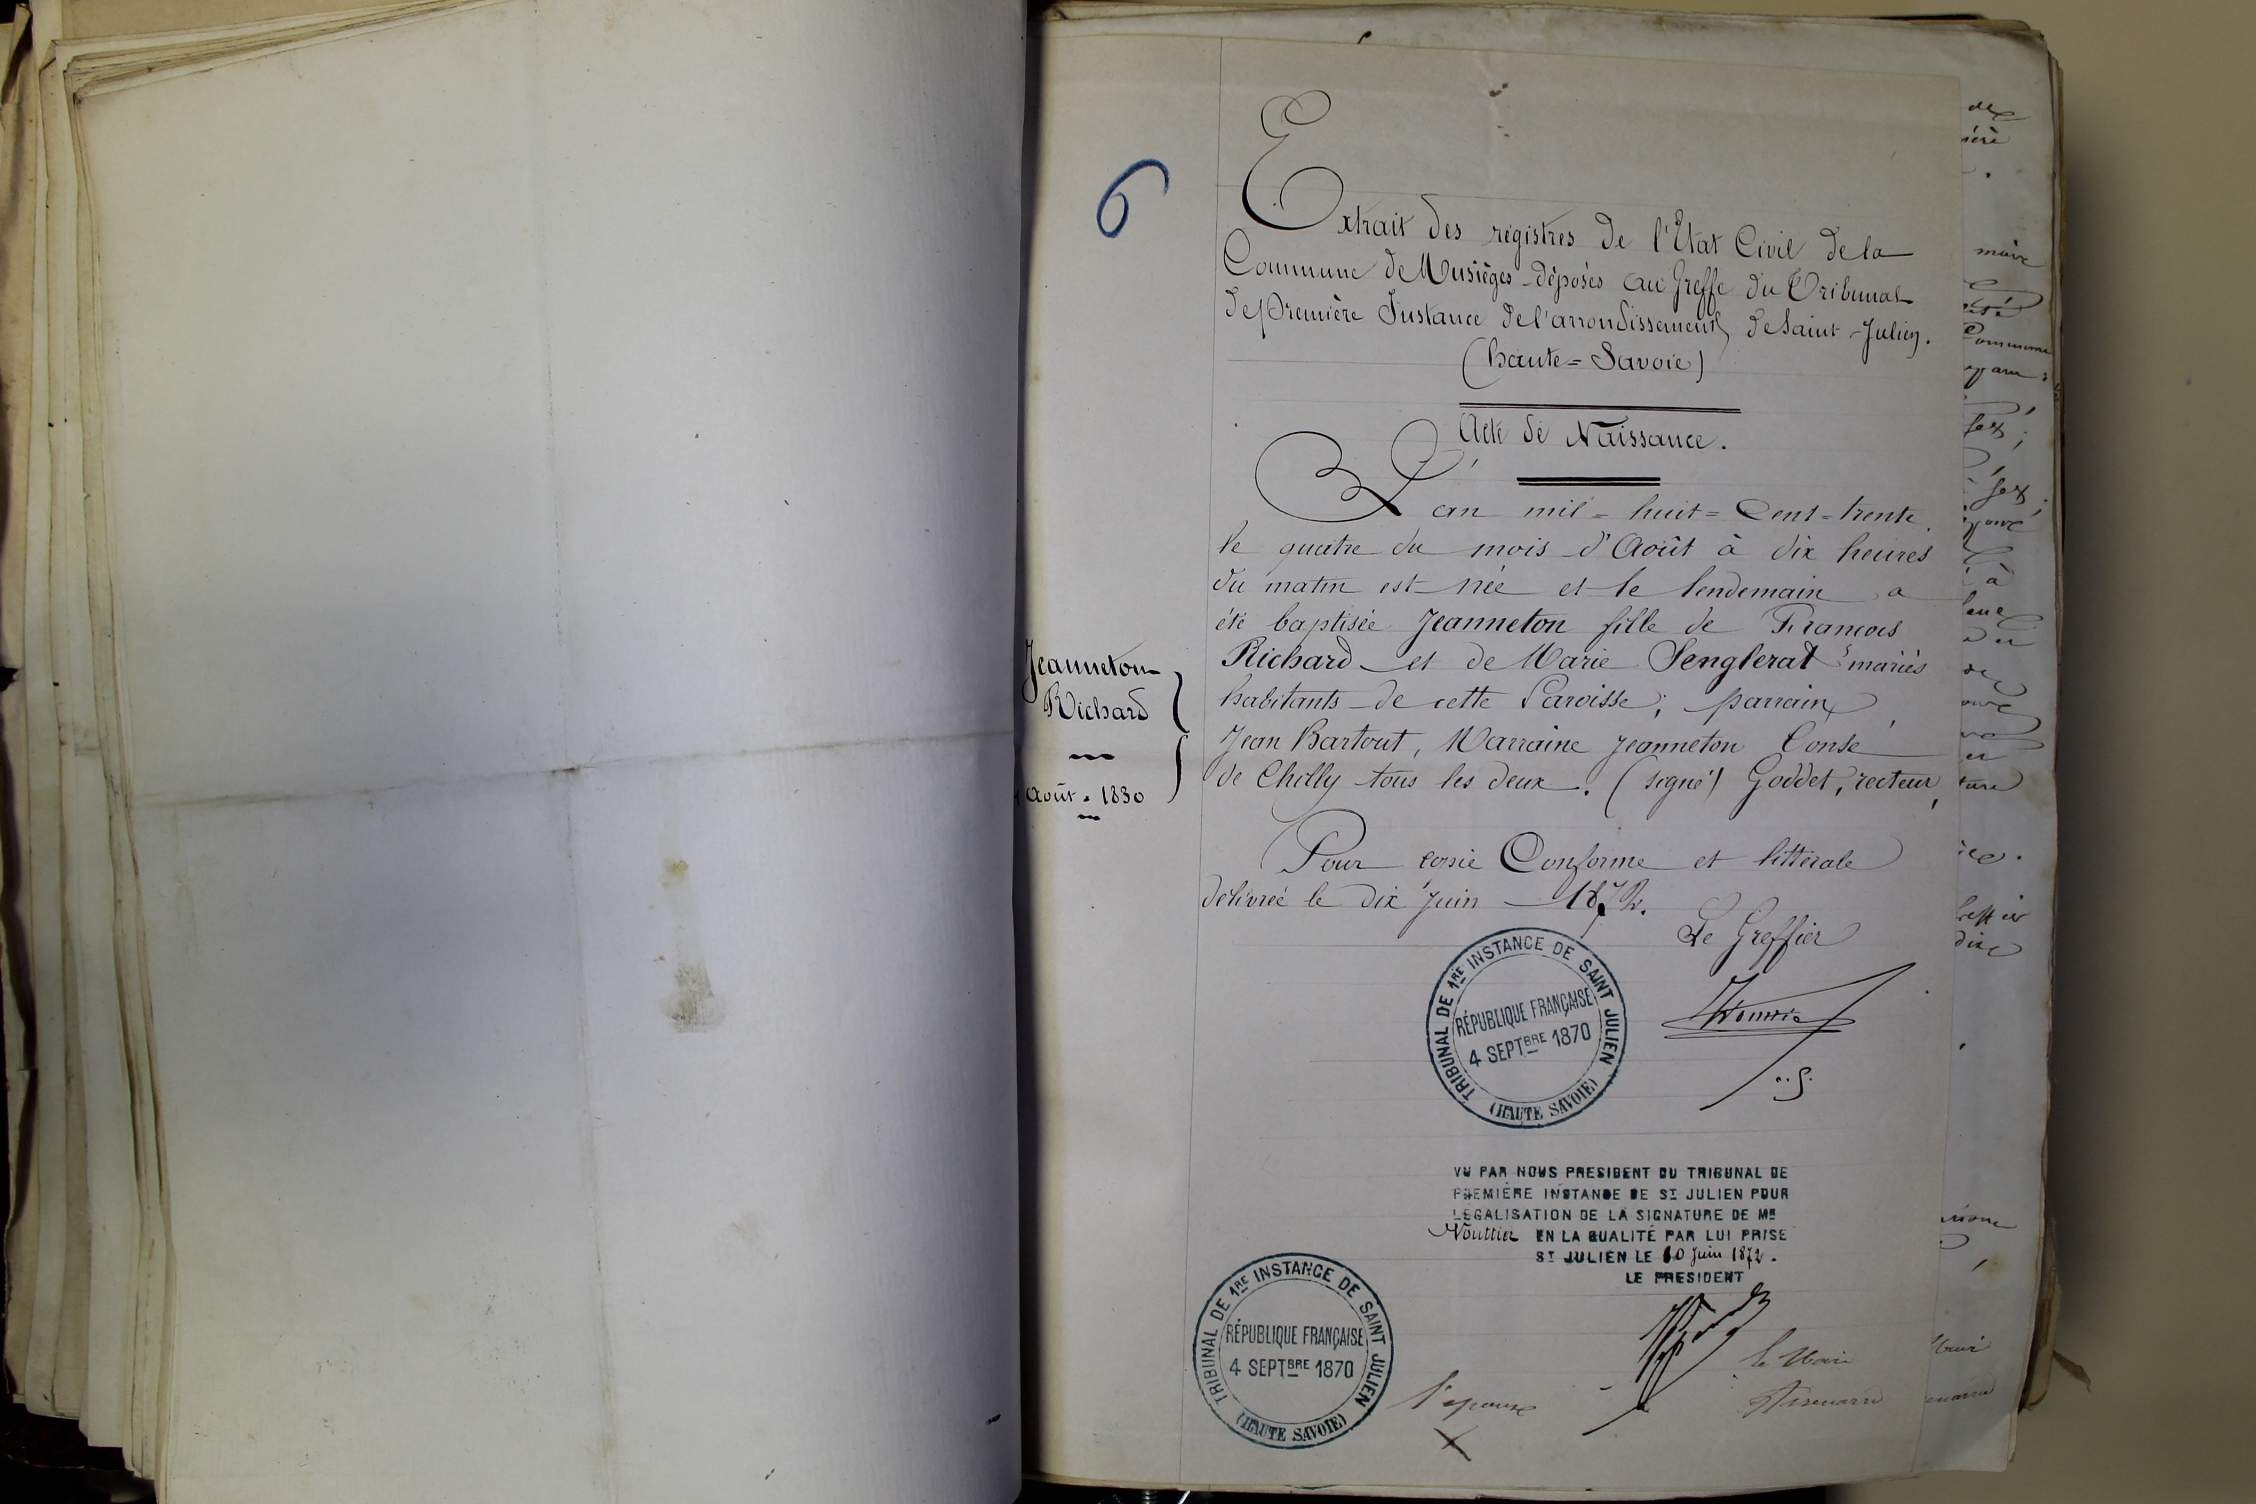 6
Extrait des registres de l'Etat Civil de la
Commune de Musièges déposés au Greffe du Tribunal
de Première Instance de l'arrondissement de Saint-Julien.
(haute=Savoie)
Acte de Naissance.
L'an mil=huit=Cent=trente
le quatre du mois d'Août à dix heures
du matin est née et le lendemain a
été baptisée Jeanneton fille de Francois
Richard et de Marie Senglerat mariés
habitants de cette Paroisse; parrain
Jean Bartout, Marraine Jeanneton Consé
de Chilly tous les deux. (signé) Goddet, recteur,
Jeanneton
Richard
Août = 1830
Pour copie Conforme et littérale
délivrée le dix Juin 1872.
Le Greffier
TRIBUNAL DE 1RE INSTANCE DE SAINT JULIEN
RÉPUBLIQUE FRANÇAISE
4 SEPTBRE 1870
(HAUTE SAVOIE)
VU PAR NOUS PRESIDENT DU TRIBUNAL DE
PREMIÈRE INSTANCE DE ST JULIEN POUR
LEGALISATION DE LA SIGNATURE DE ME
Nouttier EN LA QUALITÉ PAR LUI PRISE
ST JULIEN LE 10 Juin 1872.
LE PRESIDENT
TRIBUNAL DE 1RE INSTANCE DE SAINT JULIEN
RÉPUBLIQUE FRANÇAISE
4 SEPTBRE 1870
(HAUTE SAVOIE)
l'epouse
le Maire